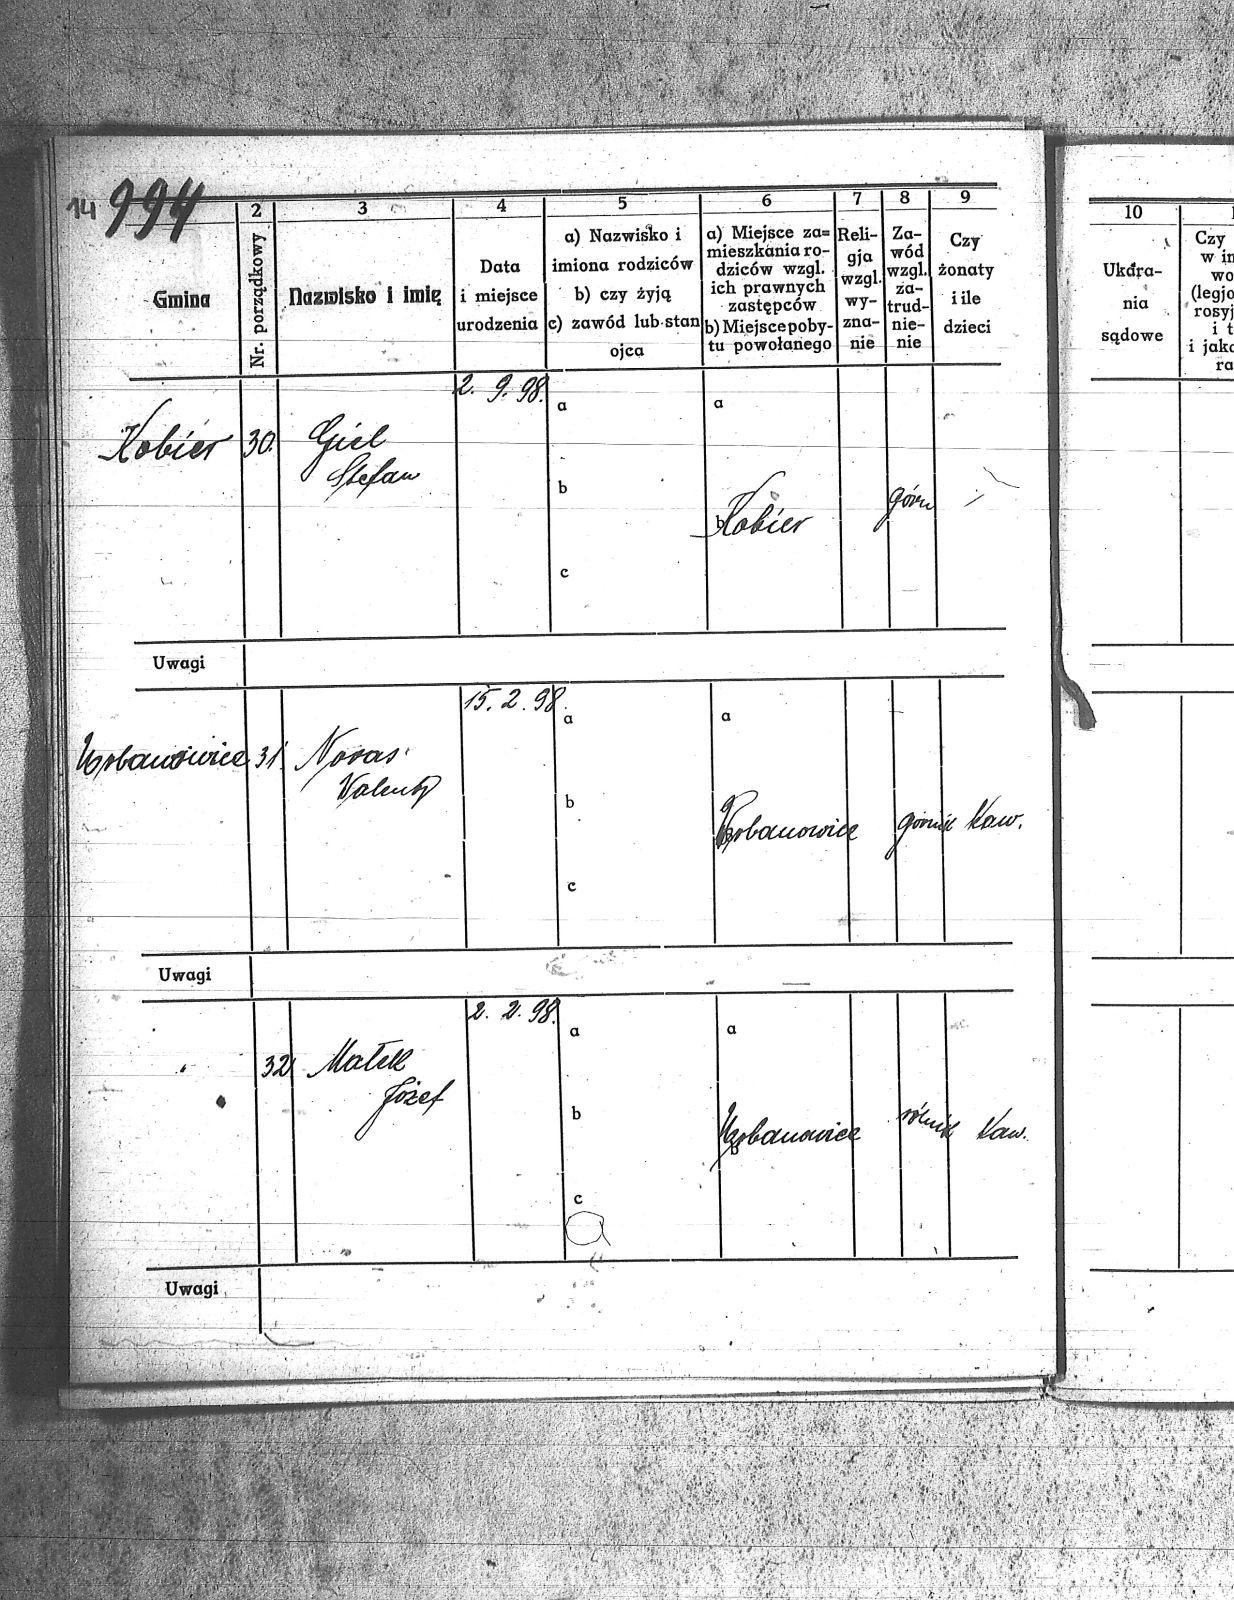 14 994
2 3 4 5 6 7 8 9
Gmina
Nr. porządkowy
Nazwisko i imię
Data
i miejsce
urodzenia
a) Nazwisko i
imiona rodziców
b) czy żyją
c) zawód lub stan
ojca
a) Miejsce za=
mieszkania ro-
dziców wzgl.
ich prawnych
zastępców
b) Miejsce poby-
tu powołanego
Reli-
gja
wzgl.
wy-
zna-
nie
Za-
wód
wzgl.
za-
trud-
nie-
nie
Czy
żonaty
i ile
dzieci
2. 9. 98.
Kobier 30. Giel
Stefan
a a
b
b Kobier górn
c
Uwagi
15. 2. 98.
Urbanowice 31. Noras
Walenty
a a
b
b Urbanowice górnik Kaw.
c
Uwagi
2. 2. 98.
32 Małek
Józef
a a
b
b Urbanowice rólnik Kaw.
c
Uwagi
10
Ukara-
nia
sądowe
Czy
w in
wo
(legjo
rosyj
i t
i jako
ra